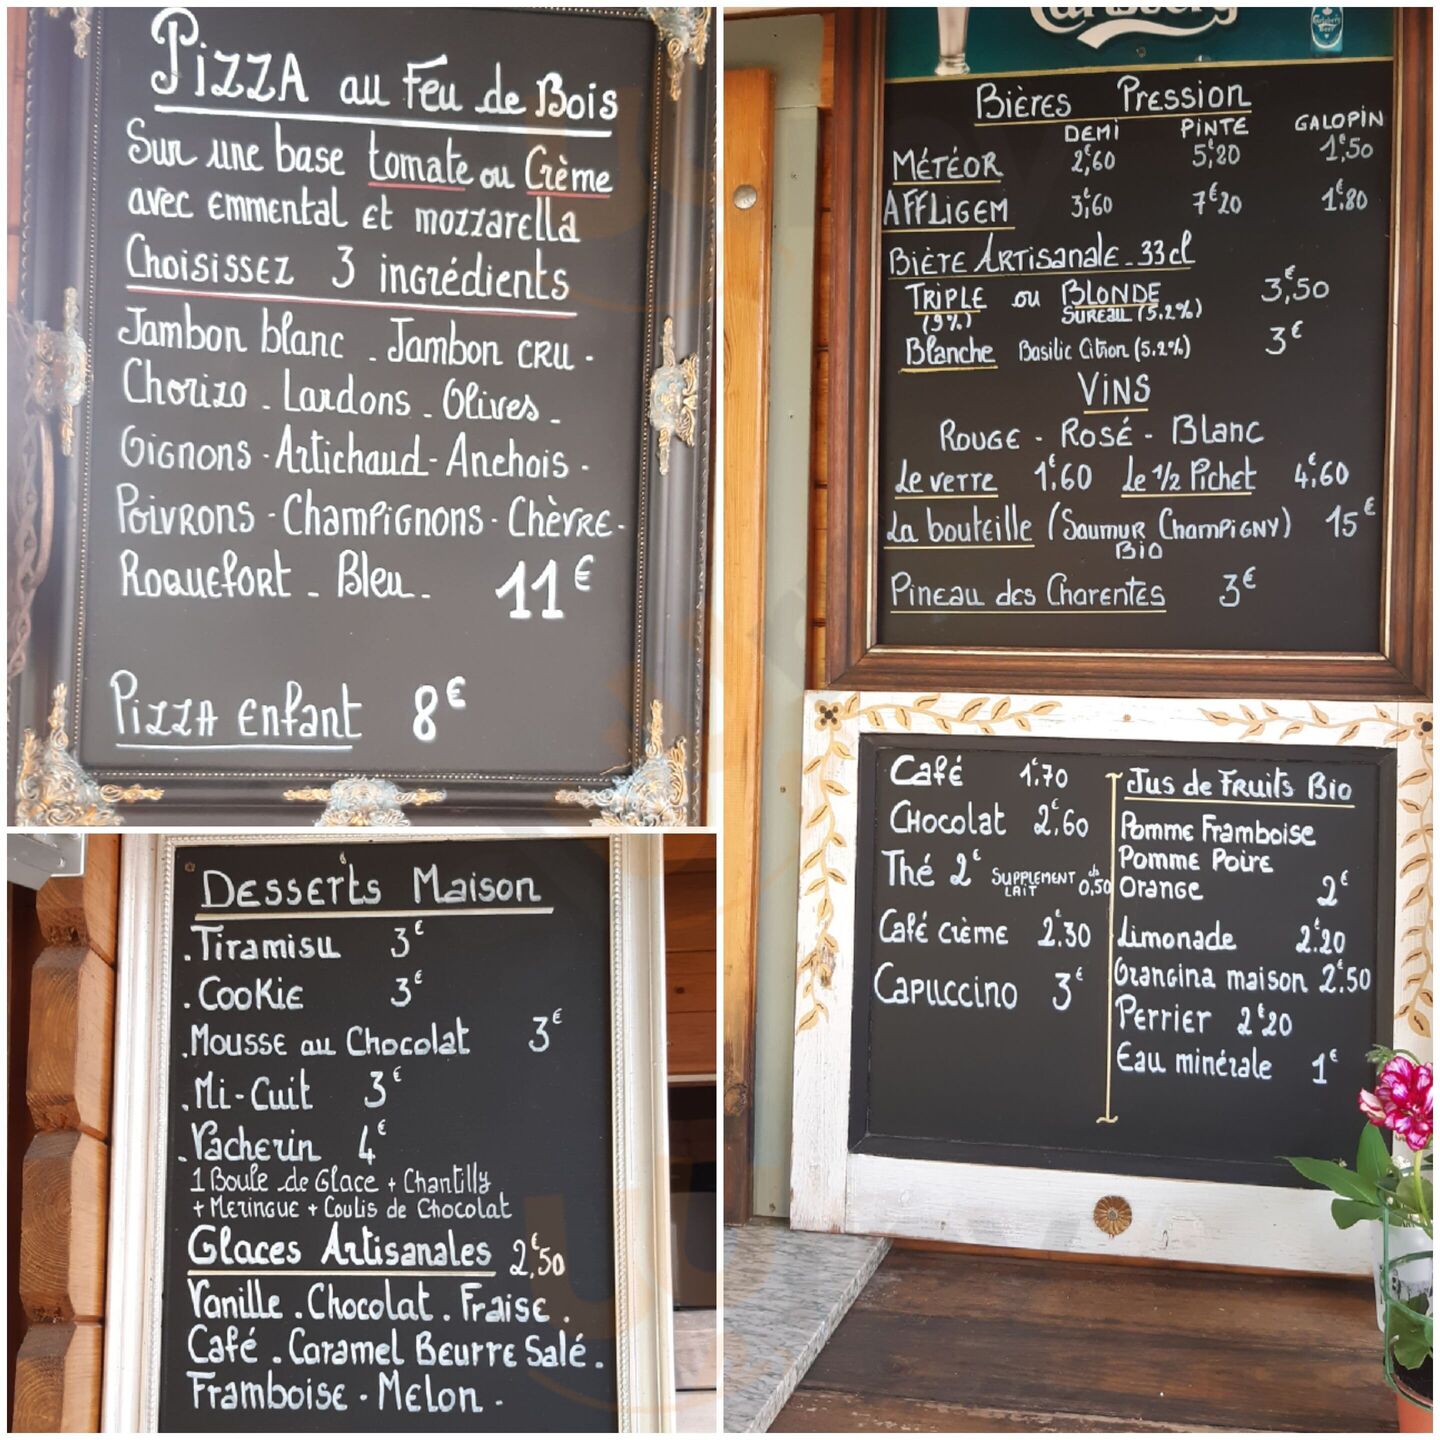 PIZZA au Feu de Bois
Sur une base tomate ou Crème
avec emmental et mozzarella
Choisissez 3 ingrédients
Jambon blanc - Jambon cru -
Chorizo - Lardons - Olives -
Oignons - Artichaud - Anchois -
Poivrons - Champignons - Chèvre -
Roquefort - Bleu - 11€
PIZZA enfant 8€
Desserts Maison
. Tiramisu 3€
. Cookie 3€
. Mousse au Chocolat 3€
. Mi-Cuit 3€
. Vacherin 4€
1 Boule de Glace + Chantilly
+ Meringue + Coulis de Chocolat
Glaces Artisanales 2€,50
Vanille . Chocolat . Fraise .
Café . Caramel Beurre Salé .
Framboise - Melon -
Carlsberg
Bières Pression
DEMI PINTE GALOPIN
MÉTÉOR 2€,60 5€,20 1€,50
AFFLIGEM 3€,60 7€20 1€.80
Bière Artisanale - 33cl
TRIPLE ou BLONDE 3€,50
(9%) SUREAU (5.2%)
Blanche Basilic Citron (5.2%) 3€
VINS
Rouge - Rosé - Blanc
Le verre 1€,60 Le 1/2 Pichet 4€,60
La bouteille (Saumur Champigny) 15€
Bio
Pineau des Charentes 3€
Café 1€.70
Chocolat 2€.60
Thé 2€ SUPPLEMENT de LAIT 0,50
Café crème 2€.30
Capuccino 3€
Jus de Fruits Bio
Pomme Framboise
Pomme Poire
Orange 2€
Limonade 2€.20
Orangina maison 2€.50
Perrier 2€20
Eau minérale 1€